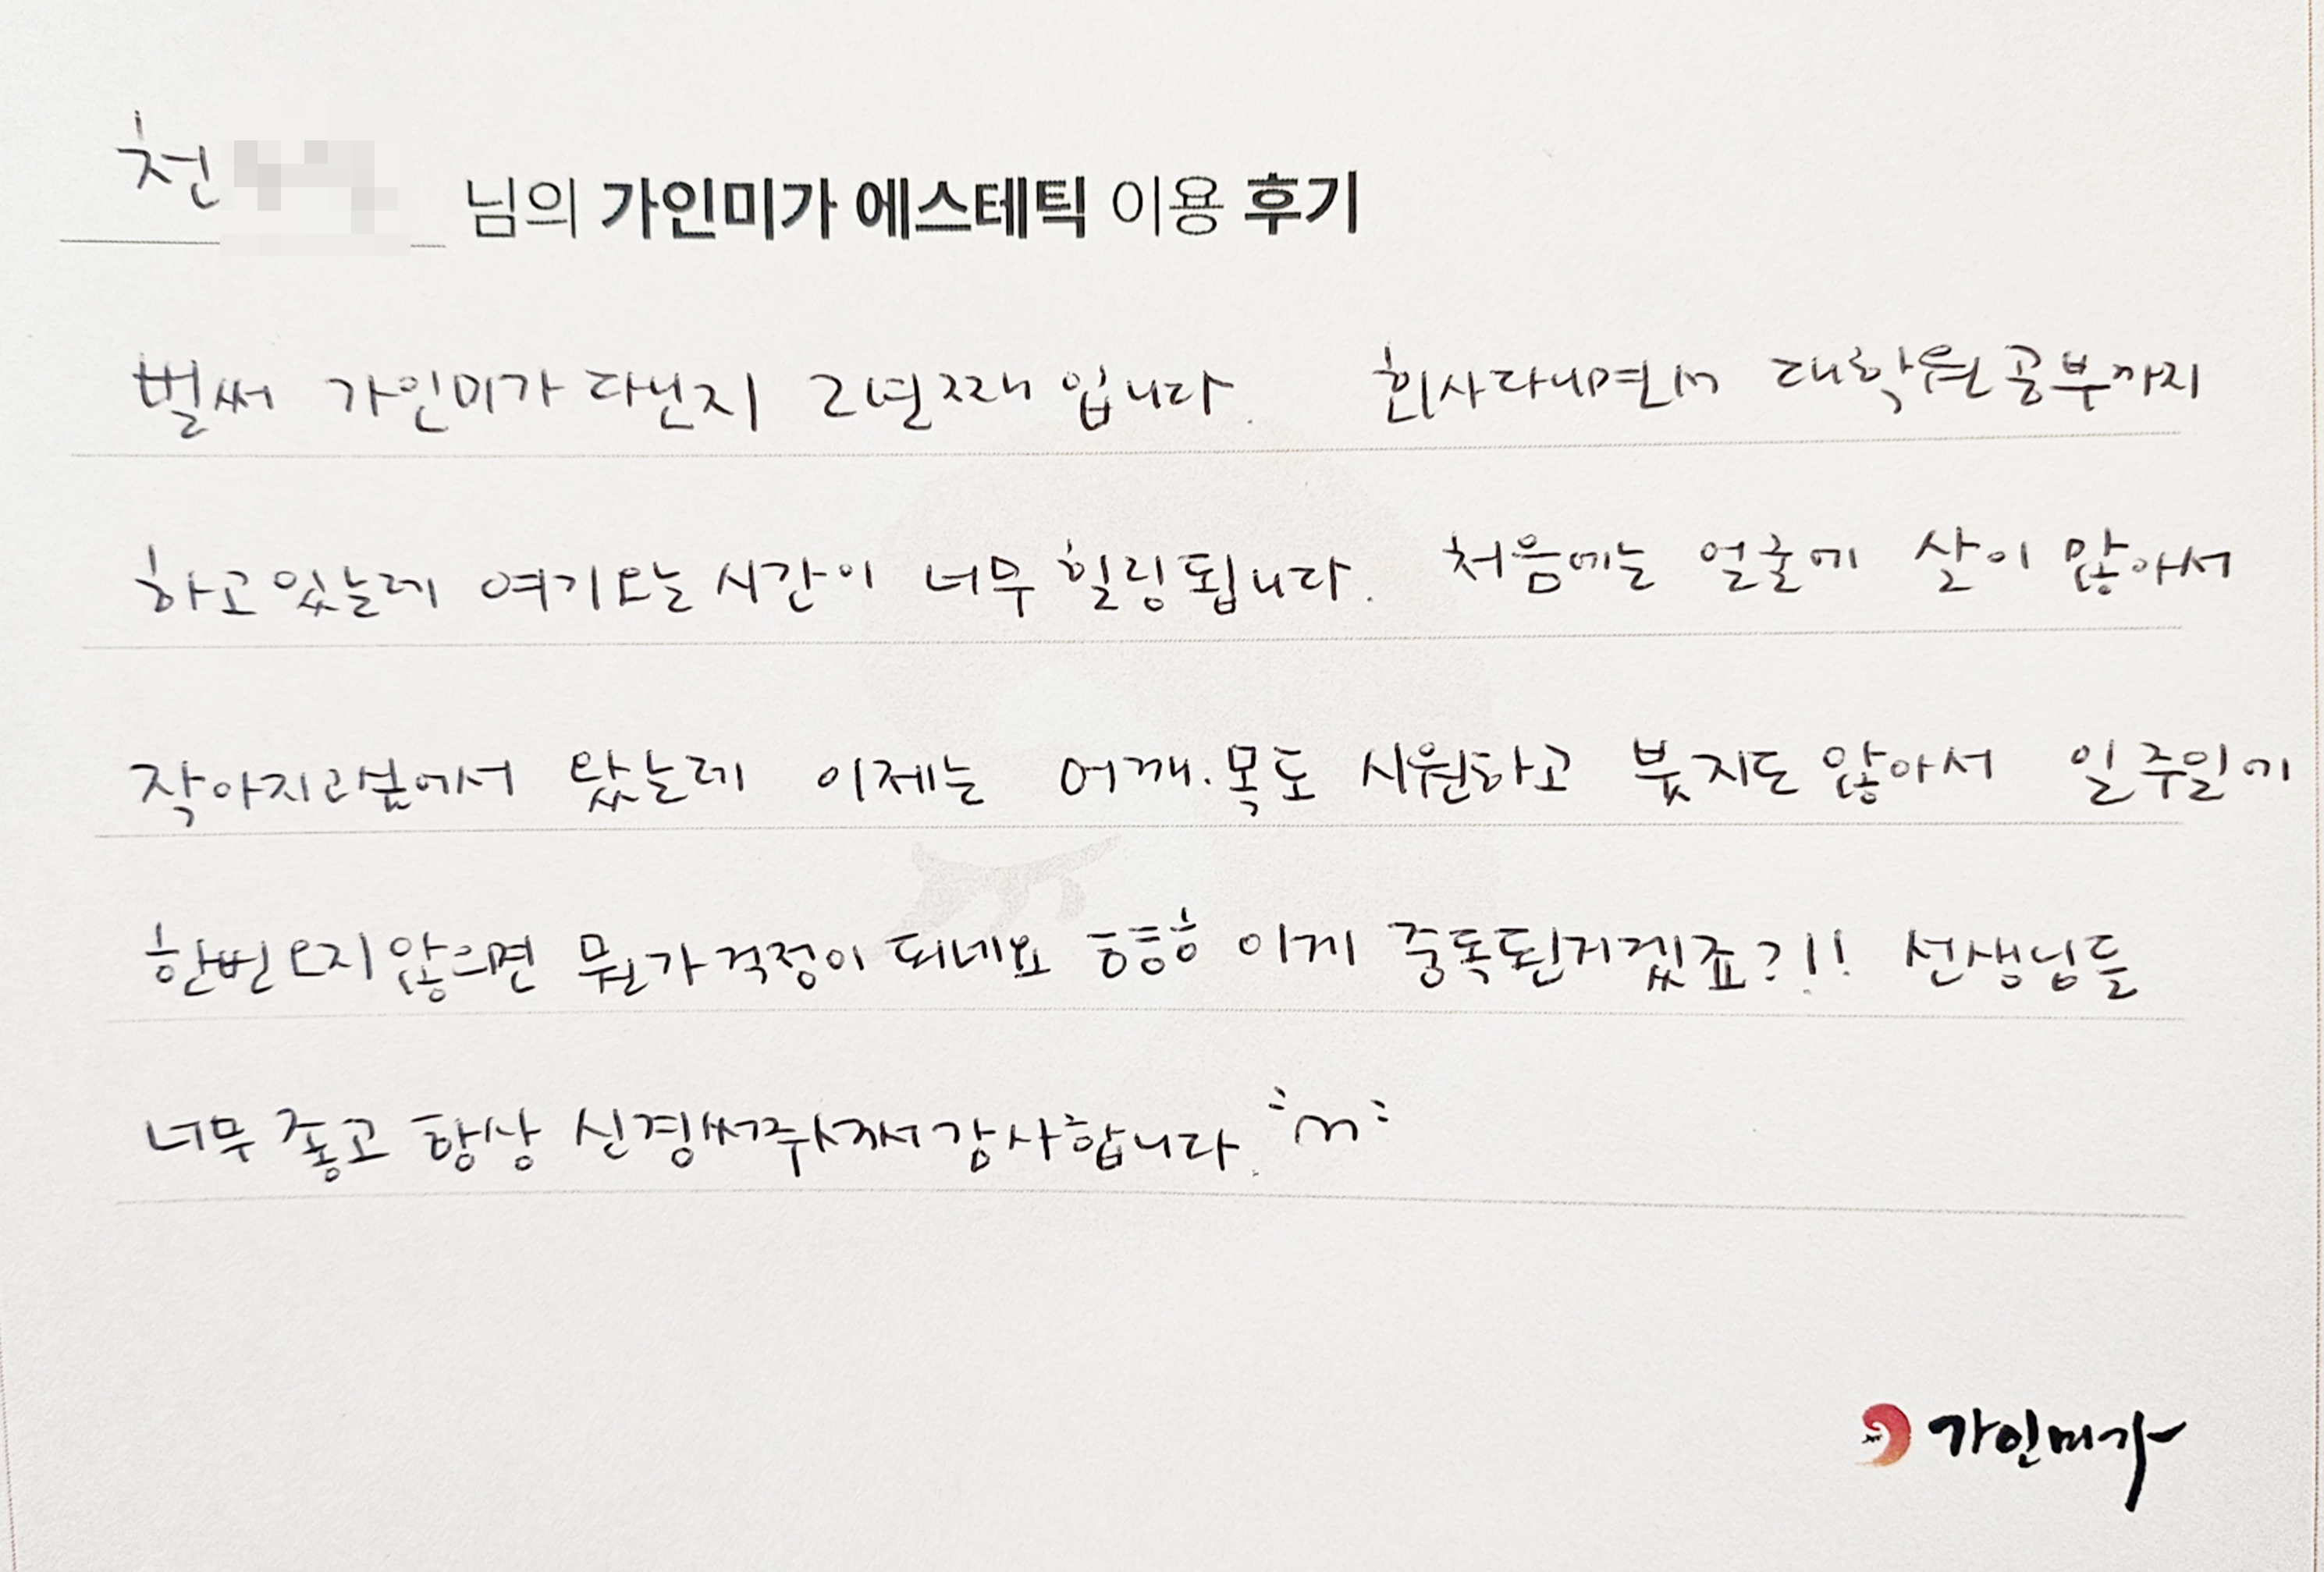 천 님의 가인미가 에스테틱 이용 후기
벌써 가인미가 다닌지 2년째 입니다. 회사다니면서 대학원공부까지
하고있는데 여기오는 시간이 너무 힐링됩니다. 처음에는 얼굴에 살이 많아서
작아지고싶어서 왔는데 이제는 어깨.목도 시원하고 붓지도 않아서 일주일에
한번오지않으면 뭔가 걱정이 되네요 흐흥흥 이게 중독된거겠죠?!! 선생님들
너무 좋고 항상 신경써주셔서 감사합니다.
가인미가